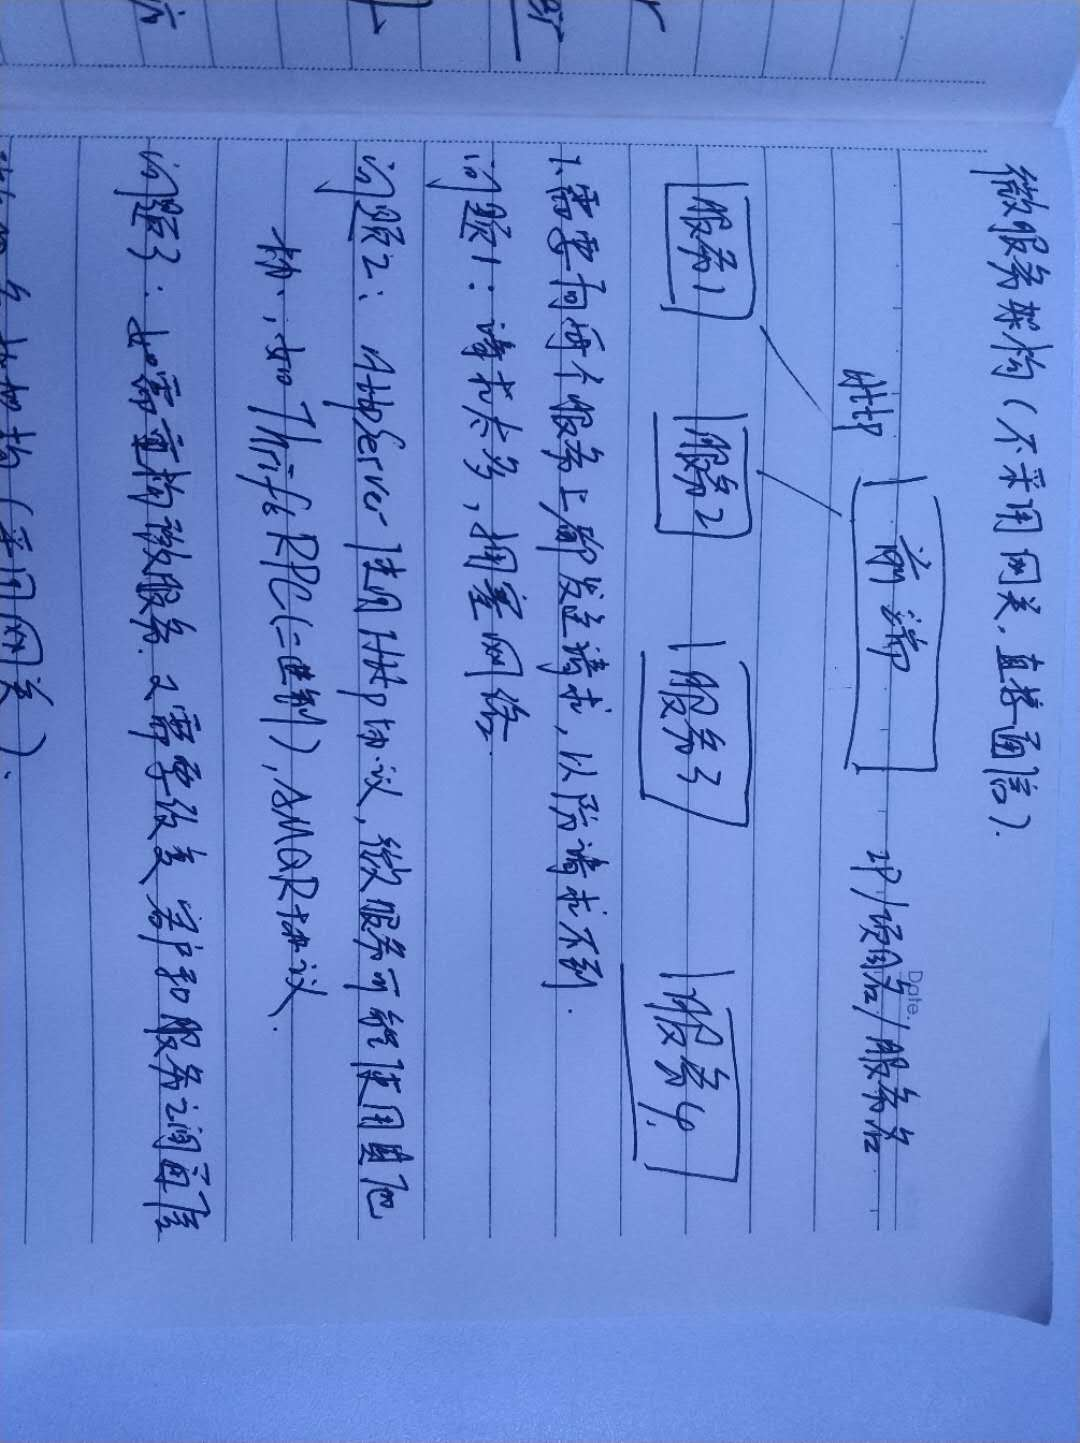 微服务架构(不采用网关,直接通信).
Date.
Http
前端
IP/项目名/服务名
服务1
服务2
服务3
服务4.
1.需要向每个服务上都发送请求,以防请求不到.
问题1:请求太多,拥塞网络.
问题2:HttpServer使用Http协议,微服务可能使用其他
协议,如Thrift RPC(二进制),AMQP协议.
问题3:如需重构微服务.又需要改变客户和服务之间通信
(采用网关).